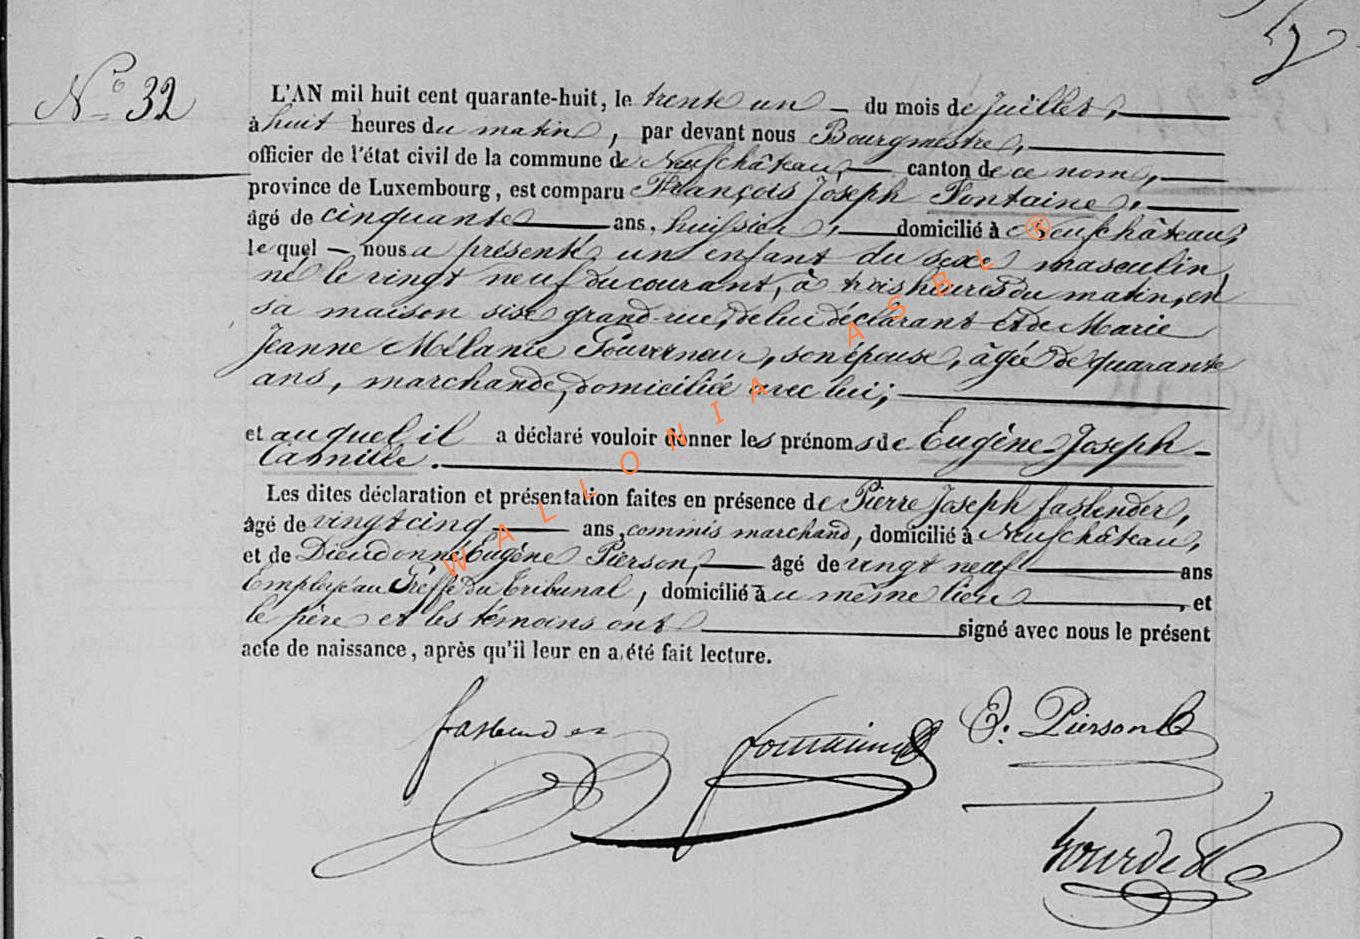 N° 32
L'AN mil huit cent quarante-huit, le trente un — du mois de Juillet,
à huit heures du matin, par devant nous Bourgmestre,
officier de l'état civil de la commune de Neufchâteau, canton de ce nom,
province de Luxembourg, est comparu François Joseph Fontaine,
âgé de cinquante ans, huissier, domicilié à Neufchâteau,
le quel — nous a présenté un enfant du sexe masculin,
né le vingt neuf du courant, à trois heures du matin, en
sa maison sise grand-rue, de lui déclarant et de Marie
Jeanne Mélanie Gouverneur, son épouse, âgée de quarante
ans, marchande, domiciliée avec lui;
et auquel il a déclaré vouloir donner les prénoms de Eugène-Joseph-
Camille.
Les dites déclaration et présentation faites en présence de Pierre Joseph fastender,
âgé de vingt cinq ans, commis marchand, domicilié à Neufchâteau,
et de Dieudonné Eugène Pierson, âgé de vingt neuf ans
Employé au Greffe du Tribunal, domicilié au même lieu, et
le père et les témoins ont signé avec nous le présent
acte de naissance, après qu'il leur en a été fait lecture.
fastender Fontaine E. Pierson
WALLONIA ASBL ®